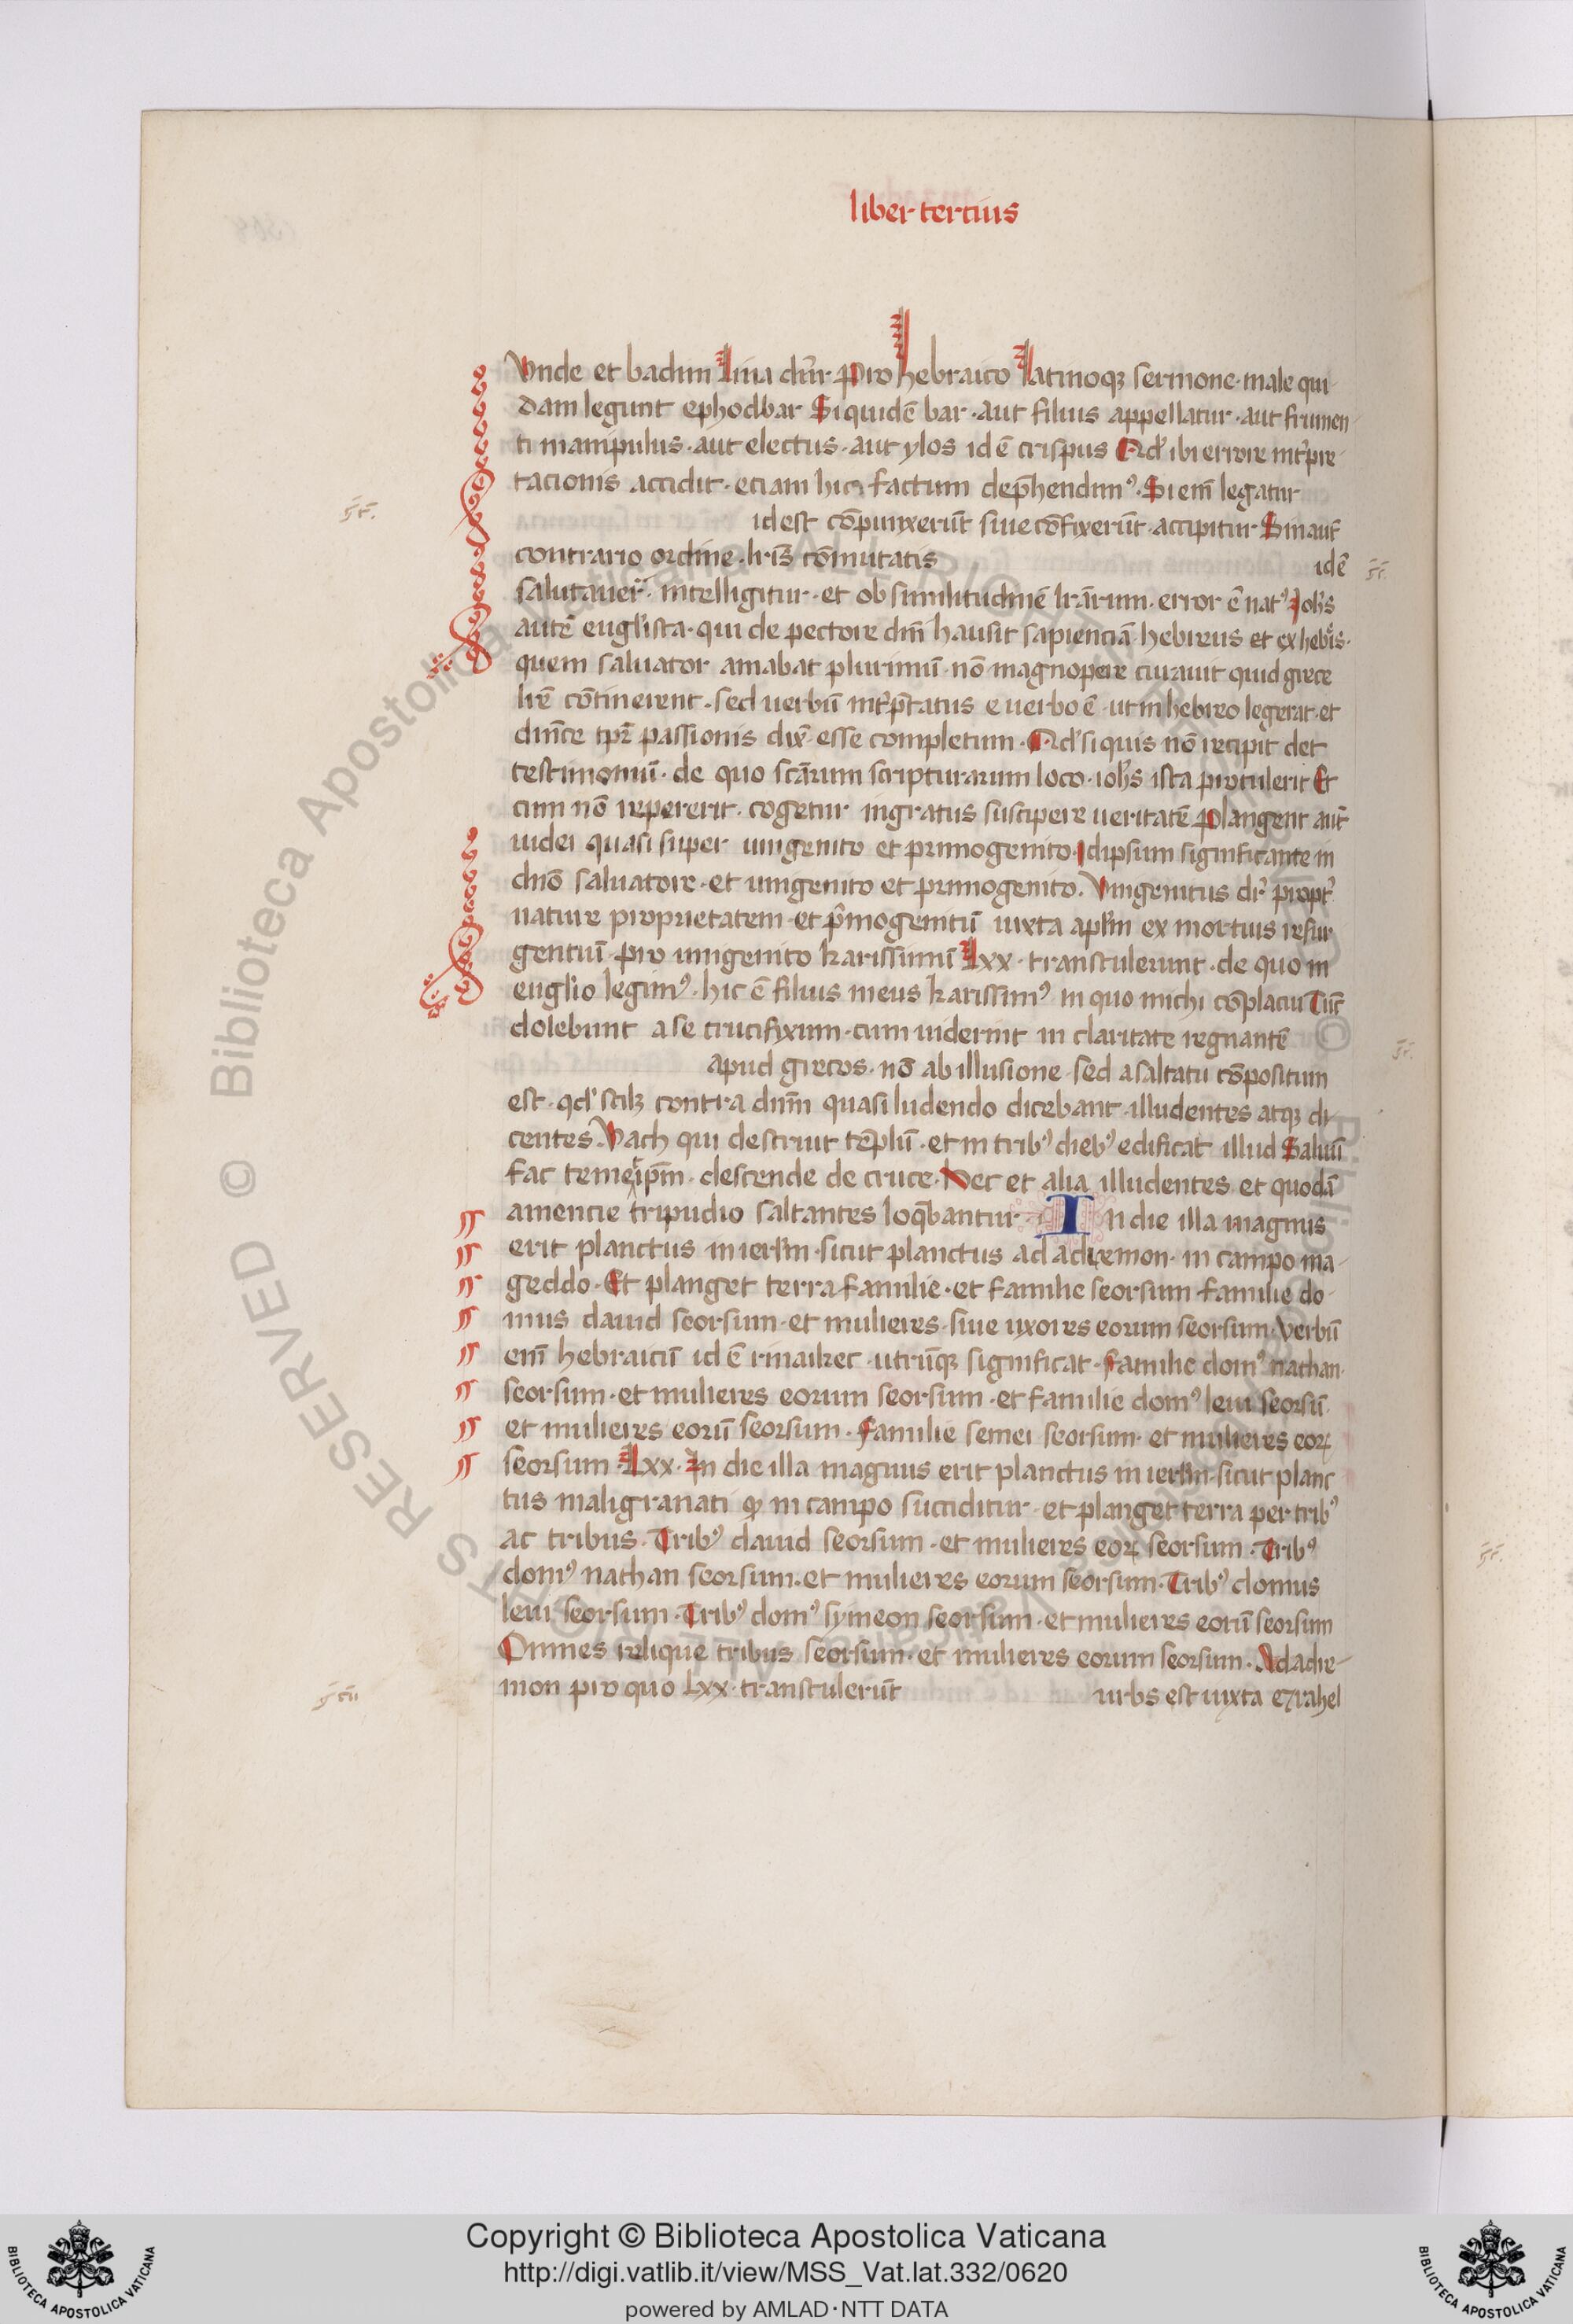 liber tertius
Vnde et baddim Lina dn̄r Pro hebraico Latinoqꝫ sermone· male qui-
dam legunt ephodbar Siquidē bar· aut filius appellatur· aut frumen-
ti manipulus· aut electus· aut ylos id ē crispus Qd' ibi errore int̄pre-
tacionis accidit· etiam hic factum dep̄hendimꝰ· Si em̄ legatur
id est cōpunxerūt siue cōfixerūt· accipitur Sin aut̄
contrario ordine· lr̄is cōmutatis idē
salutauer̄· intelligitur· et ob similitudinē lr̄arum· error ē natꝰ Joh̄s
autē euglista· qui de pectore dn̄i hausit sapienciā hebreus et ex hebr̄is·
quem saluator amabat plurimū· nō magnopere curauit quid grece
lr̄e cōtinerent· sed uerbū int̄p̄tatus e uerbo ē· ut in hebreo legerat· et
din̄ce tp̄r passionis dix̄ esse completum· Qd' si quis nō recipit det
testimoniū· de quo sc̄arum scripturarum loco· ioh̄s ista protulerit Et
cum nō repererit· cogetur ingratus suscipere ueritatē Plangent aut̄
iudei quasi super unigenito et primogenito· Idipsum significante in
dn̄o saluatore· et unigenito et primogenito. Vnigenitus dr̄ propt̄
nature proprietatem· et p̄mogenitū iuxta ap̄lm ex mortuis resur
gentiū· pro unigenito karissimū Lxx· transtulerunt· de quo in
euglio legimꝰ· hic ē filius meus karissimꝰ in quo michi cōplacui Tūc
dolebunt a se crucifixum· cum uiderint in claritate regnantē
apud grecos· nō ab illusione· sed a saltatu cōpositum
est· qd' scilꝫ contra dn̄m quasi ludendo dicebant· illudentes atqꝫ di-
centes. Vach qui destruit tēplū· et in tribꝰ diebꝰ edificat illud Saluū
fac temeip̄m· descende de cruce· Hec et alia illudentes et quodā
amencie tripudio saltantes loq̄bantur In die illa magnus
erit planctus in ierl̄m· sicut planctus ad adremon· in campo ma-
geddo· Et planget terra familie· et familie seorsum familie do-
mus dauid seorsum· et mulieres· siue uxores eorum seorsum· Verbū
em̄ hebraicū id ē rinaikec· utrūqꝫ significat· familie domꝰ nathan·
seorsum· et mulieres eorum seorsum· et familie domꝰ leui seorsū·
et mulieres eorū seorsum· Familie semei seorsum· et mulieres eoꝝ
seorsum· Lxx· In die illa magnus erit planctus in ierl̄m· sicut planc
tus maligranati qꝫ in campo succiditur· et planget terra per tribꝰ
ac tribus· Tribꝰ dauid seorsum· et mulieres eoꝝ seorsum· Tribꝰ
domꝰ nathan seorsum· et mulieres eorum seorsum· Tribꝰ domus
leui seorsum· Tribꝰ domꝰ symeon seorsum· et mulieres eorū seorsum
Omnes relique tribus seorsum· et mulieres eorum seorsum· Adadre-
mon pro quo Lxx· transtulerūt urbs est iuxta ezrahel
Copyright © Biblioteca Apostolica Vaticana
http://digi.vatlib.it/view/MSS_Vat.lat.332/0620
powered by AMLAD·NTT DATA